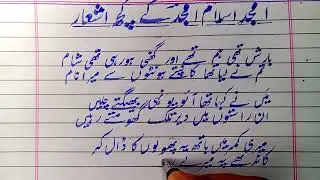 امجد اسلام امجد کے کچھ اشعار
بارش تھی ہم تھے اور گھنی ہو رہی تھی شام
تم نے لیا تھا کانپتے ہونٹوں سے میرا نام
میں نے کہا تھا آؤ یونہی بھیگتے چلیں
ان راستوں میں دیر تلک گھومتے رہیں
میری کمر میں ہاتھ یہ پھولوں کا ڈال کر
کاندھے پہ میرے